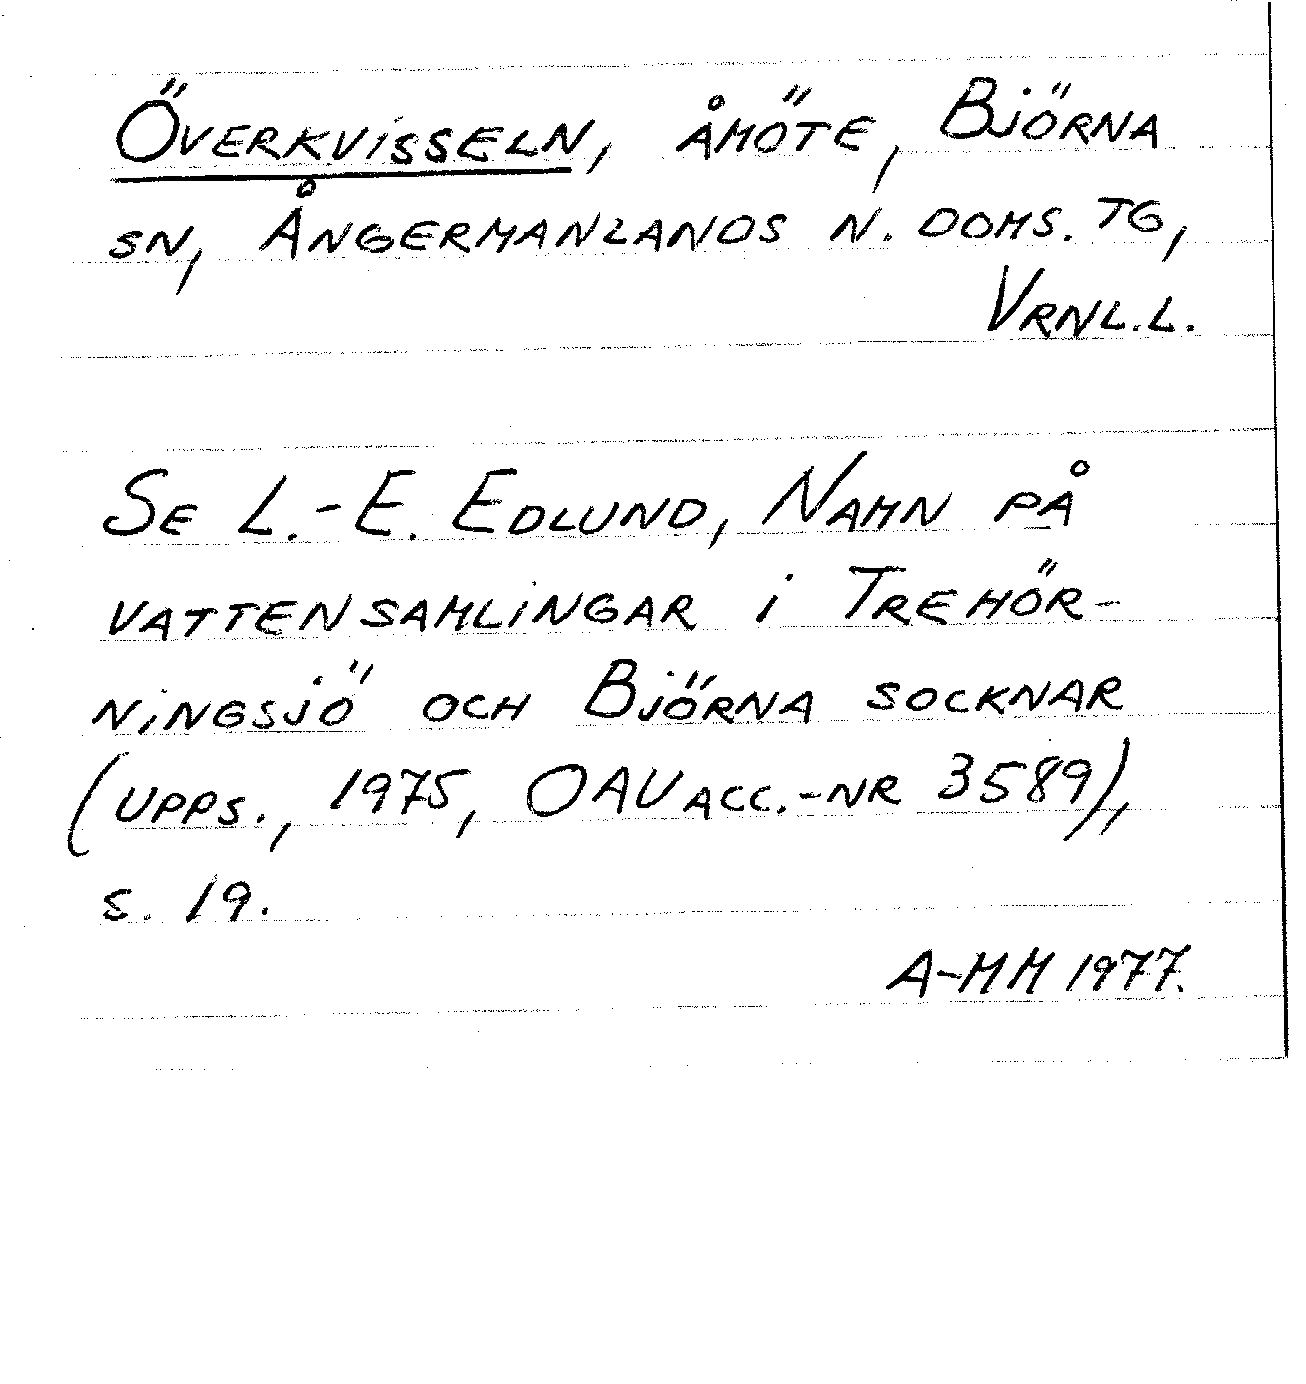 Överkvisseln, åmöte, Björna
sn, Ångermanlands n. doms. tg,
Vrnl.l.
Se L.-E. Edlund, Namn på
vattensamlingar i Trehör-
ningsjö och Björna socknar
(upps., 1975, OAU acc.-nr 3589),
s. 19.
A-MM 1977.